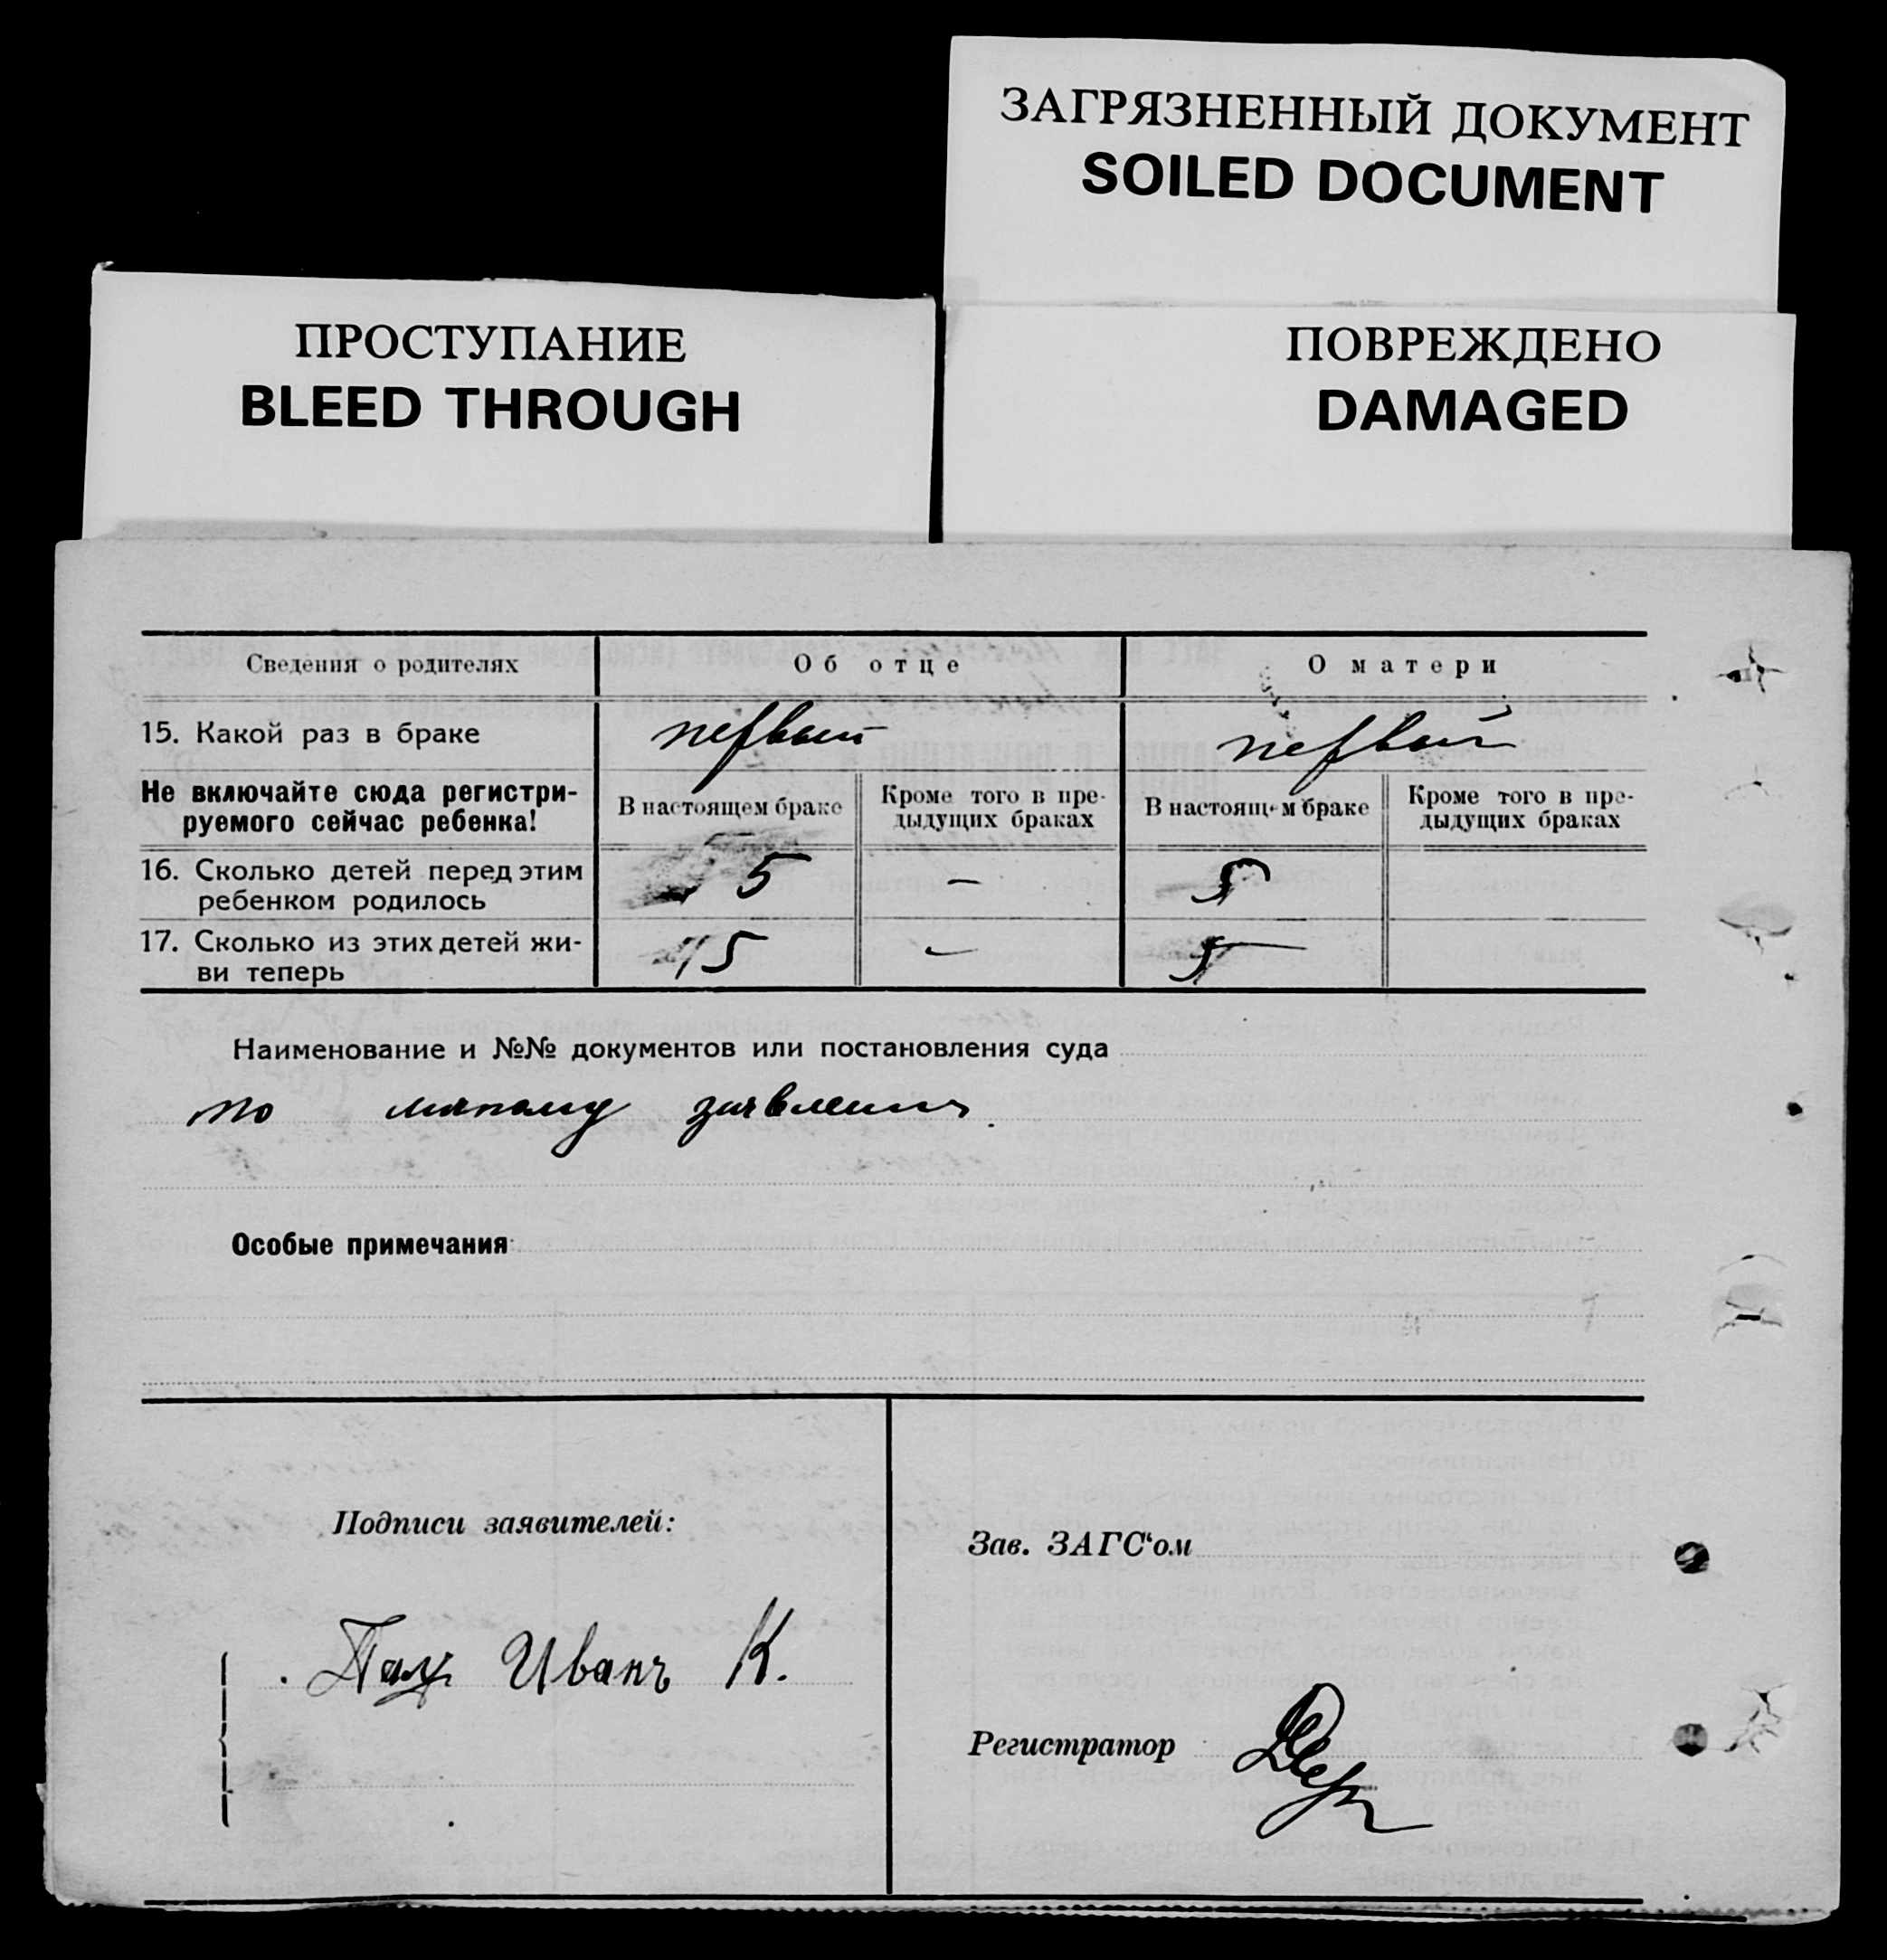 ЗАГРЯЗНЕННЫЙ ДОКУМЕНТ
SOILED DOCUMENT
ПРОСТУПАНИЕ
BLEED THROUGH
ПОВРЕЖДЕНО
DAMAGED
Сведения о родителях Об отце О матери
15. Какой раз в браке первый первый
Не включайте сюда регистри-
руемого сейчас ребенка!
В настоящем браке
Кроме того в пре-
дыдущих браках
В настоящем браке
Кроме того в пре-
дыдущих браках
16. Сколько детей перед этим
ребенком родилось
5 — 5
17. Сколько из этих детей жи-
ви теперь
5 — 5
Наименование и №№ документов или постановления суда
по заявлению
Особые примечания
Подписи заявителей:
Иванъ К.
Зав. ЗАГС‘ом
Регистратор